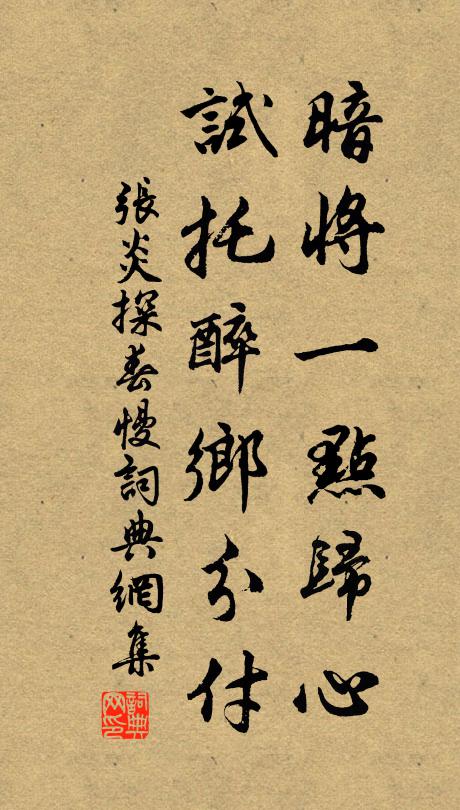 暗將一點歸心
試托醉鄉分付
張炎探春慢詞典網集
詞典网印